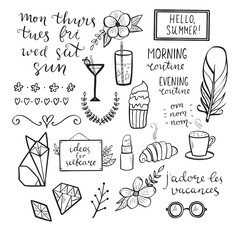 mon thurs
tues fri
wed sat
sun
HELLO,
SUMMER!
MORNING
routine
EVENING
routine
om
nom
nom
ideas
for
selfcare
j'adore les
vacances